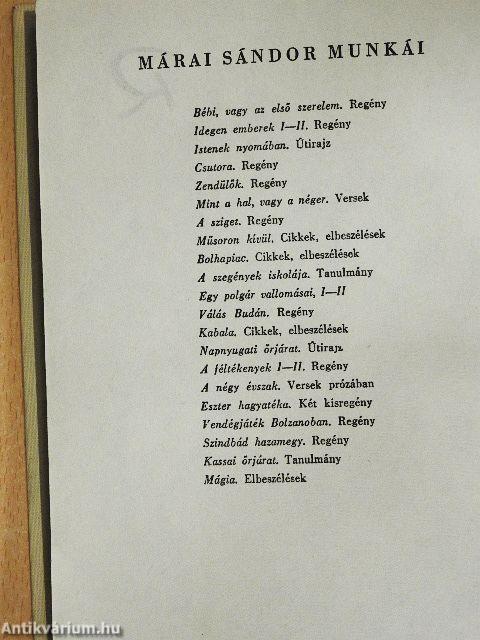 MÁRAI SÁNDOR MUNKÁI
Bébi, vagy az első szerelem. Regény
Idegen emberek I—II. Regény
Istenek nyomában. Útirajz
Csutora. Regény
Zendülők. Regény
Mint a hal, vagy a néger. Versek
A sziget. Regény
Műsoron kívül. Cikkek, elbeszélések
Bolhapiac. Cikkek, elbeszélések
A szegények iskolája. Tanulmány
Egy polgár vallomásai, I—II
Válás Budán. Regény
Kabala. Cikkek, elbeszélések
Napnyugati őrjárat. Útirajz
A féltékenyek I—II. Regény
A négy évszak. Versek prózában
Eszter hagyatéka. Két kisregény
Vendégjáték Bolzanoban. Regény
Szindbád hazamegy. Regény
Kassai őrjárat. Tanulmány
Mágia. Elbeszélések
Antikvárium.hu